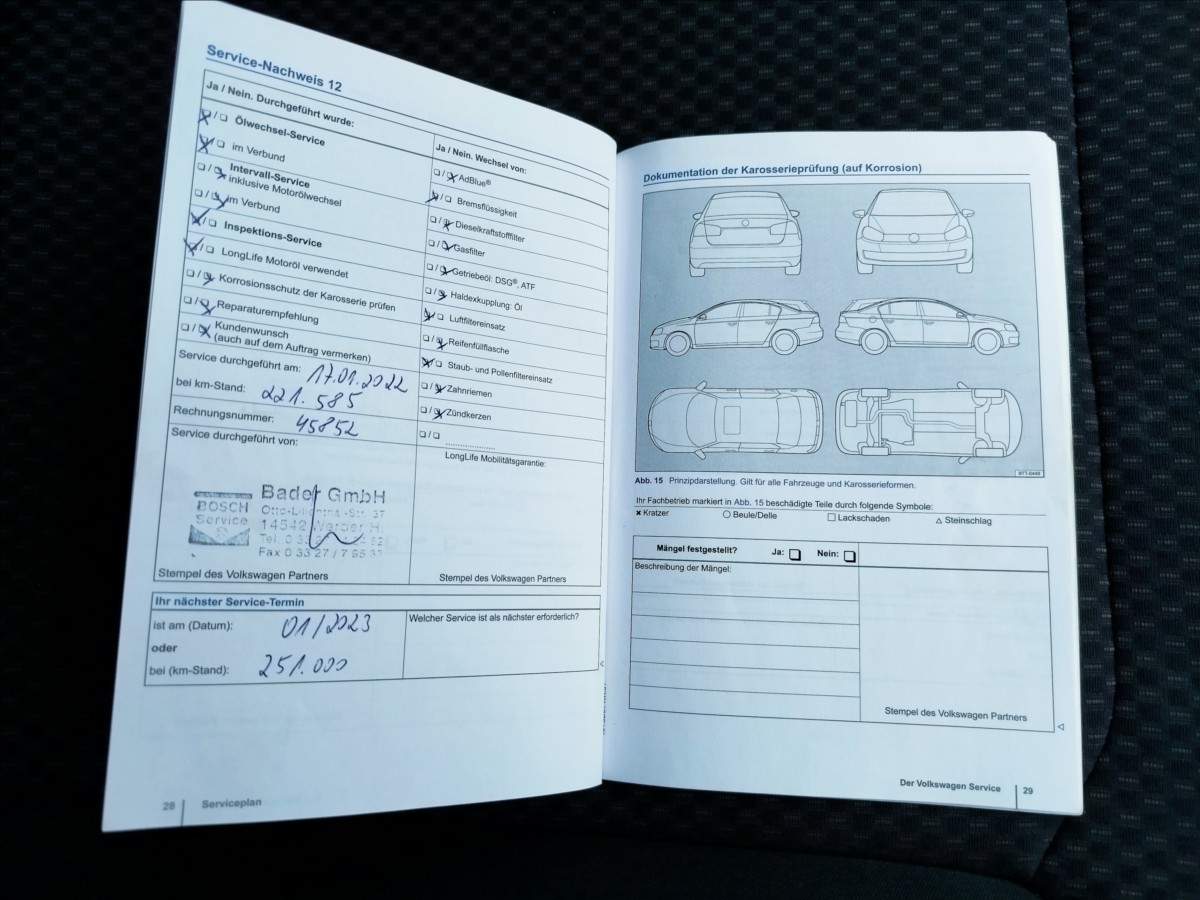 Service-Nachweis 12
Ja / Nein. Durchgeführt wurde:
☒ / ☐ Ölwechsel-Service
☒ / ☐ im Verbund
☐ / ☒ Intervall-Service
inklusive Motorölwechsel
☐ / ☒ im Verbund
☒ / ☐ Inspektions-Service
☒ / ☐ LongLife Motoröl verwendet
☐ / ☒ Korrosionsschutz der Karosserie prüfen
☐ / ☒ Reparaturempfehlung
☐ / ☒ Kundenwunsch
(auch auf dem Auftrag vermerken)
Service durchgeführt am: 17.01.2022
bei km-Stand: 221.585
Rechnungsnummer: 45852
Service durchgeführt von:
BOSCH
Service
Bader GmbH
14542 Werder
Stempel des Volkswagen Partners
Ja / Nein. Wechsel von:
☐ / ☒ AdBlue®
☒ / ☐ Bremsflüssigkeit
☐ / ☒ Dieselkraftstofffilter
☐ / ☒ Gasfilter
☐ / ☒ Getriebeöl: DSG®, ATF
☐ / ☒ Haldexkupplung: Öl
☒ / ☐ Luftfiltereinsatz
☐ / ☒ Reifenfüllflasche
☒ / ☐ Staub- und Pollenfiltereinsatz
☐ / ☒ Zahnriemen
☐ / ☒ Zündkerzen
☐ / ☐ ..................
LongLife Mobilitätsgarantie:
Stempel des Volkswagen Partners
Ihr nächster Service-Termin
ist am (Datum): 01/2023
oder
bei (km-Stand): 251.000
Welcher Service ist als nächster erforderlich?
28 Serviceplan
Dokumentation der Karosserieprüfung (auf Korrosion)
Abb. 15 Prinzipdarstellung. Gilt für alle Fahrzeuge und Karosserieformen.
Ihr Fachbetrieb markiert in Abb. 15 beschädigte Teile durch folgende Symbole:
× Kratzer ○ Beule/Delle □ Lackschaden △ Steinschlag
Mängel festgestellt? Ja: ☐ Nein: ☐
Beschreibung der Mängel:
Stempel des Volkswagen Partners
Der Volkswagen Service 29